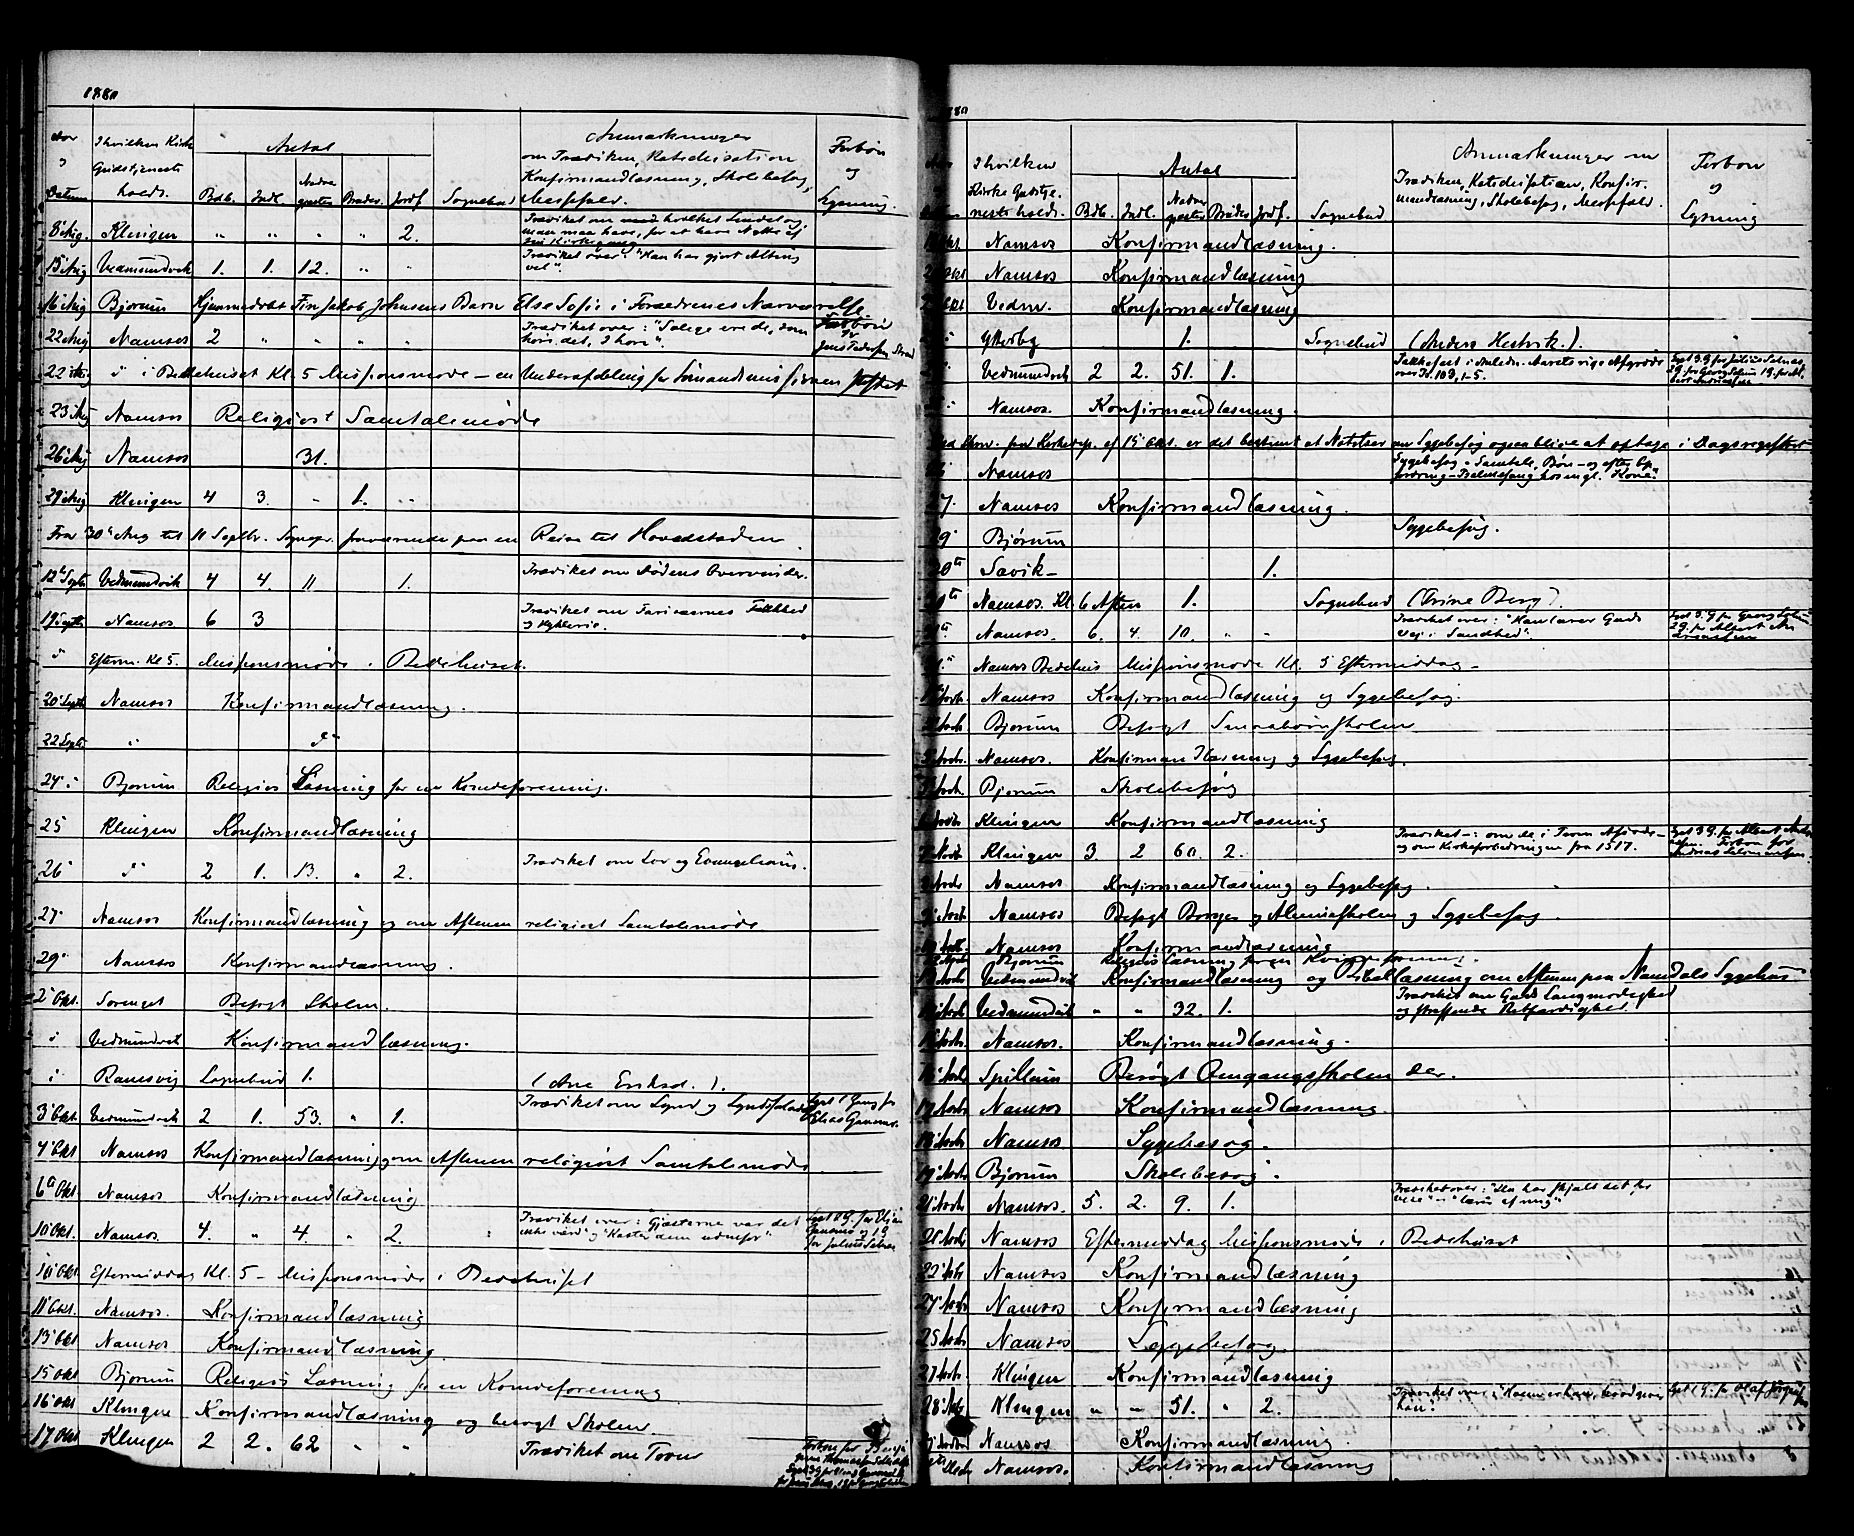 1880
Aar
Datum
I hvilken Kirke
Gudstjeneste
holdt.
Antal
Bdb. Indl. Andre gjæster Brudev. Jordf.
Sognebud
Anmærkninger
om Prædiken, Katechisation
Konfirmandlæsning, Skolebesøg,
Messefald.
Forbøn
og
Lysning.
8' Aug. Klingen " " " " 2. Prædiket om
15' Aug Vedmundvik 1. 1. 12. " " Prædiket over: "Han har gjort Alting
vel".
16' Aug Bjørum Hjemmedøbt Jakob Johnsens Barn Else Sofie i Forældrenes Nærværelse
22' Aug Namsos 2 " " " " Prædiket over: "Salige ere de, som
høre det, I høre". Forbøn
Jens Pedersen
22' Aug i Bedehuset Kl. 5 Missionsmøde – en Underafdeling for Sømandsmissionen stiftet
23' Aug Namsos Religiøst Samtalemøde
26' Aug Namsos 31.
29' Aug Klingen 4 3. " 1. "
Fra 30' Aug til 11 Septbr. Sognepr. fraværende paa en Reise til Hovedstaden
12' Septb Vedmundvik 4 4. 11 1. Prædiket om Dødens Overvinder.
19' Septb Namsos 6 3 Prædiket om Farisæernes Falskhed
og Hykleri.
Efterm. Kl 5. Missionsmøde i Bedehuset.
20' Septb Namsos Konfirmandlæsning.
22 Septb " do
24' " Bjørum Religiøs Læsning for en Kvindeforening.
25 Klingen Konfirmandlæsning
26 do 2 1. 13. " 2. Prædiket om Lov og Evangelium.
27' Namsos Konfirmandlæsning og om Aftenen religiøst Samtalemøde
29' Namsos Konfirmandlæsning.
2' Okt. Besøgt Skolen.
Vedmundvik Konfirmandlæsning.
Ramsvig Sognebud 1. (Ane Eriksd.).
3' Okt Vedmundvik 2 1. 53. " 1. Prædiket om Synd og Syndsforladelse Lyst 1 Gang for
Elias
4' Okt Namsos Konfirmandlæsning, om Aftenen religiøst Samtalemøde
6' Okt Namsos Konfirmandlæsning
10' Okt. Namsos. 4. " 4. " 2. Prædiket over: "Gjæsterne var det
ikke værd" og "Kaster dem udenfor".
10' Okt Eftermiddag Kl. 5 – Missionsmøde i Bedehuset
11' Okt. Namsos. Konfirmandlæsning
13' Okt Namsos Konfirmandlæsning.
15' Okt Bjørum Religiøs Læsning for en Kvindeforening
16' Okt Klingen Konfirmandlæsning og besøgt Skolen.
17' Okt Klingen 2 2. 62 " " Prædiket om Troen
I hvilken
Kirke Gudstje-
neste holdt.
Antal
Bdb. Indl. Nadver
gjæster Brudev. Jordf.
Sognebud
Anmærkninger om
Prædiken, Katechisation, Konfir-
mandlæsning, Skolebesøg, Messefald.
Forbøn
og
Lysning
Okt. Namsos Konfirmandlæsning.
Okt Namsos Konfirmandlæsning
Okt Vedm. Konfirmandlæsning
Ytterby 1. Sognebud (Anders Hestvik.).
Vedmundvik 2 2. 51. 1. Takkefest i Anledn. Aarets rige Afgrøde
over Ps. 103, 1-5.
Namsos. Konfirmandlæsning.
Ved Skriv. fra Kirkedep. af 15' Okt. er det bestemt at Notitser om Sygebesøg ogsaa blive at optage i Dagsregistret
Namsos Sygebesøg – Samtale, Bøn –
27. Namsos Konfirmandlæsning.
29' Bjørum Sygebesøg.
30' Savik – 1.
Namsos. Kl. 6 Aften 1. Sognebud Berg).
Namsos. 6. 4. 10. " " Prædiket over: "Han lærer Guds
Vej i Sandhed".
Namsos Bedehus Missionsmøde Kl. 5 Eftermiddag –
Novb. Namsos Konfirmandlæsning og Sygebesøg.
Novb. Bjørum Besøgt Smaabørnsskolen
Novb. Namsos. Konfirmandlæsning og Sygebesøg.
Novb. Bjørum Skolebesøg
Novb. Klingen Konfirmandlæsning
7' Novb Klingen 3. 2 60. 2. Prædiket
og om Kirkeforbedringen fra 1517.
Novb Namsos Konfirmandlæsning og Sygebesøg.
Novb. Namsos Besøgt Borger og Almueskolen og Sygebesøg.
Novb. Namsos Konfirmandlæsning
Bjørum Religiøs Læsning for en Kvindeforening.
Novb Vedmundvik Konfirmandlæsning og Bibellæsning om Aftenen paa Namdals Sygehus
Novb Vedmundvik " " 32. 1. Prædiket om Guds Langmodighed
og straffende Retfærdighed.
15' Novb Namsos. Konfirmandlæsning.
16' Novb Spillum Besøgt Omgangsskolen der.
17 Novb Namsos Konfirmandlæsning.
18' Novb Namsos Sygebesøg.
19' Novb Bjørum Skolebesøg.
21' Novb Namsos. 5. 2. 9. 1.
Novb Namsos Eftermiddag Missionsmøde i Bedehuset
22' Novb Namsos Konfirmandlæsning
24' Novb Namsos Konfirmandlæsning
25 Novb Namsos Sygebesøg.
27 Novb. Klingen Konfirmandlæsning
28' Novb Klingen " " 51. " 2.
Novb Namsos Konfirmandlæsning.
Decbr Namsos. Konfirmandlæsning